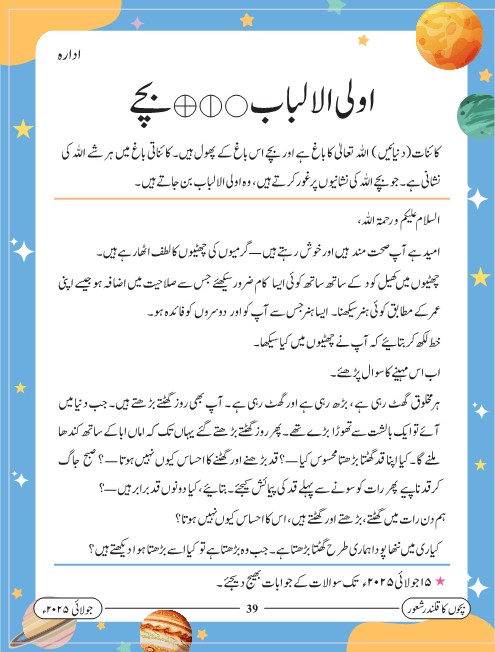 ادارہ
اولی الالباب ○⦶⊕ بچے
کائنات (دنیائیں) اللہ تعالیٰ کا باغ ہے اور بچے اس باغ کے پھول ہیں۔ کائناتی باغ میں ہر شے اللہ کی
نشانی ہے۔ جو بچے اللہ کی نشانیوں پر غور کرتے ہیں، وہ اولی الالباب بن جاتے ہیں۔
السلام علیکم ورحمۃ اللہ،
امید ہے آپ صحت مند ہیں اور خوش رہتے ہیں — گرمیوں کی چھٹیوں کا لطف اٹھا رہے ہیں۔
چھٹیوں میں کھیل کود کے ساتھ ساتھ کوئی ایسا کام ضرور سیکھئے جس سے صلاحیت میں اضافہ ہو جیسے اپنی
عمر کے مطابق کوئی ہنر سیکھنا۔ ایسا ہنر جس سے آپ کو اور دوسروں کو فائدہ ہو۔
خط لکھ کر بتائیے کہ آپ نے چھٹیوں میں کیا سیکھا۔
اب اس مہینے کا سوال پڑھئے۔
ہر مخلوق گھٹ رہی ہے، بڑھ رہی ہے اور گھٹ رہی ہے۔ آپ بھی روز گھٹتے بڑھتے ہیں۔ جب دنیا میں
آئے تو ایک بالشت سے تھوڑا بڑے تھے۔ پھر روز گھٹتے بڑھتے گئے یہاں تک کہ اماں ابا کے ساتھ کندھا
ملنے گا۔ کیا اپنا قد گھٹتا بڑھتا محسوس کیا —؟ قد بڑھنے اور گھٹنے کا احساس کیوں نہیں ہوتا —؟ صبح جاگ
کر قد ناپیے پھر رات کو سونے سے پہلے قد کی پیمائش کیجئے۔ بتائیے، کیا دونوں قد برابر ہیں —؟
ہم دن رات میں گھٹتے، بڑھتے اور گھٹتے ہیں، اس کا احساس کیوں نہیں ہوتا؟
کیاری میں ننھا پودا ہماری طرح گھٹتا بڑھتا ہے۔ جب وہ بڑھتا ہے تو کیا اسے بڑھتا ہوا دیکھتے ہیں؟
★ ۱۵ جولائی ۲۰۲۵ء تک سوالات کے جوابات بھیج دیجئے۔
بچوں کا قلندر شعور 39 جولائی ۲۰۲۵ء